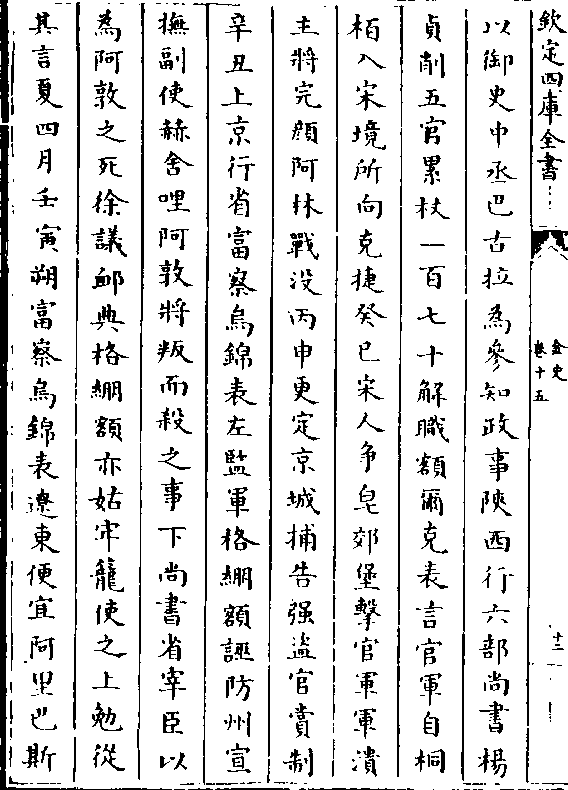 欽定四庫全書
金史
卷十五
十三
以御史中丞巴古拉為參知政事陝西行六部尚書楊
貞削五官累杖一百七十解職額爾克表言官軍自桐
栢入宋境所向克捷癸巳宋人争皂郊堡擊官軍軍潰
主將完顔阿林戰没丙申更定京城捕告强盗官賞制
辛丑上京行省富察烏錦表左監軍格綳額誣防州宣
撫副使赫舍哩阿敦將叛而殺之事下尚書省宰臣以
為阿敦之死徐議䘏典格綳額亦姑牢籠使之上勉從
其言夏四月壬寅朔富察烏錦表遼東便宜阿里巴斯